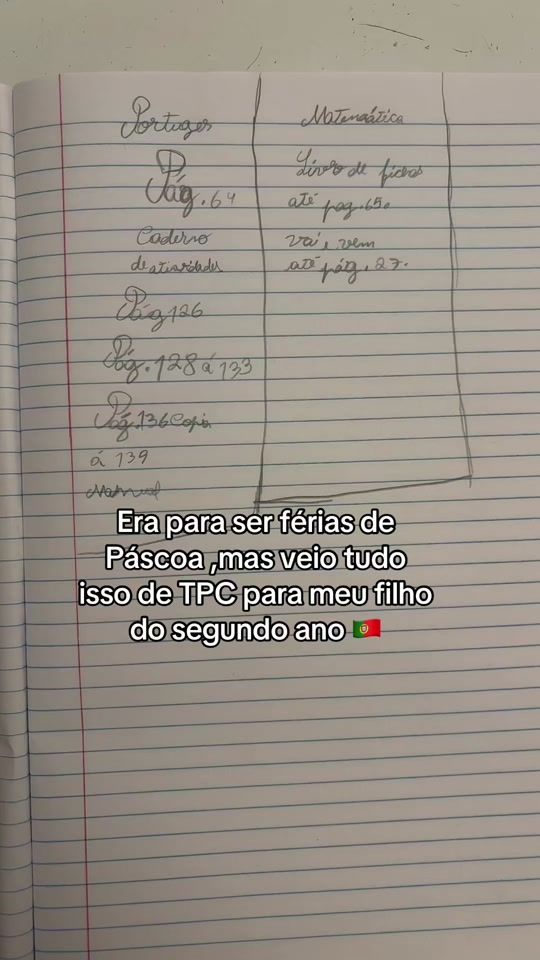 Portuges
Pág. 64
Caderno
de atividades
Pág 126
Pág. 128 á 133
Pág. 136 Copia
á 139
Manual
Matemáática
Livro de fichas
até pag. 65.
vai, vem
até pág. 27.
Era para ser férias de
Páscoa ,mas veio tudo
isso de TPC para meu filho
do segundo ano 🇵🇹